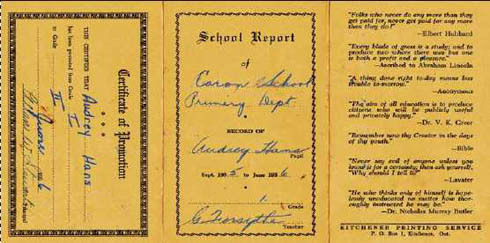 Certificate of Promotion
THIS CERTIFIES THAT
Audrey Hans
has been promoted from Grade I
to Grade II
June 6
School Report
of
Caron School
Primary Dept.
RECORD OF
Audrey Hans
Pupil
Sept. 1935 to June 1936
1 Grade
C Forsythe
Teacher
"Folks who never do any more than they
get paid for, never get paid for any more
than they do!"
—Elbert Hubbard
"Every blade of grass is a study; and to
produce two where there was but one
is both a profit and a pleasure."
—Ascribed to Abraham Lincoln
"A thing done right today means less
trouble to-morrow."
—Anonymous
"The aim of all education is to produce
citizens who will be publicly useful
and privately happy."
—Dr. V. K. Greer
"Remember now thy Creator in the days
of thy youth."
—Bible
"Never say evil of anyone unless you
know it for a certainty; then ask yourself,
'Why should I tell it?'"
—Lavater
"He who thinks only of himself is hope-
lessly uneducated no matter how thor-
oughly instructed he may be."
—Dr. Nicholas Murray Butler
KITCHENER PRINTING SERVICE
P. O. Box 1, Kitchener, Ont.